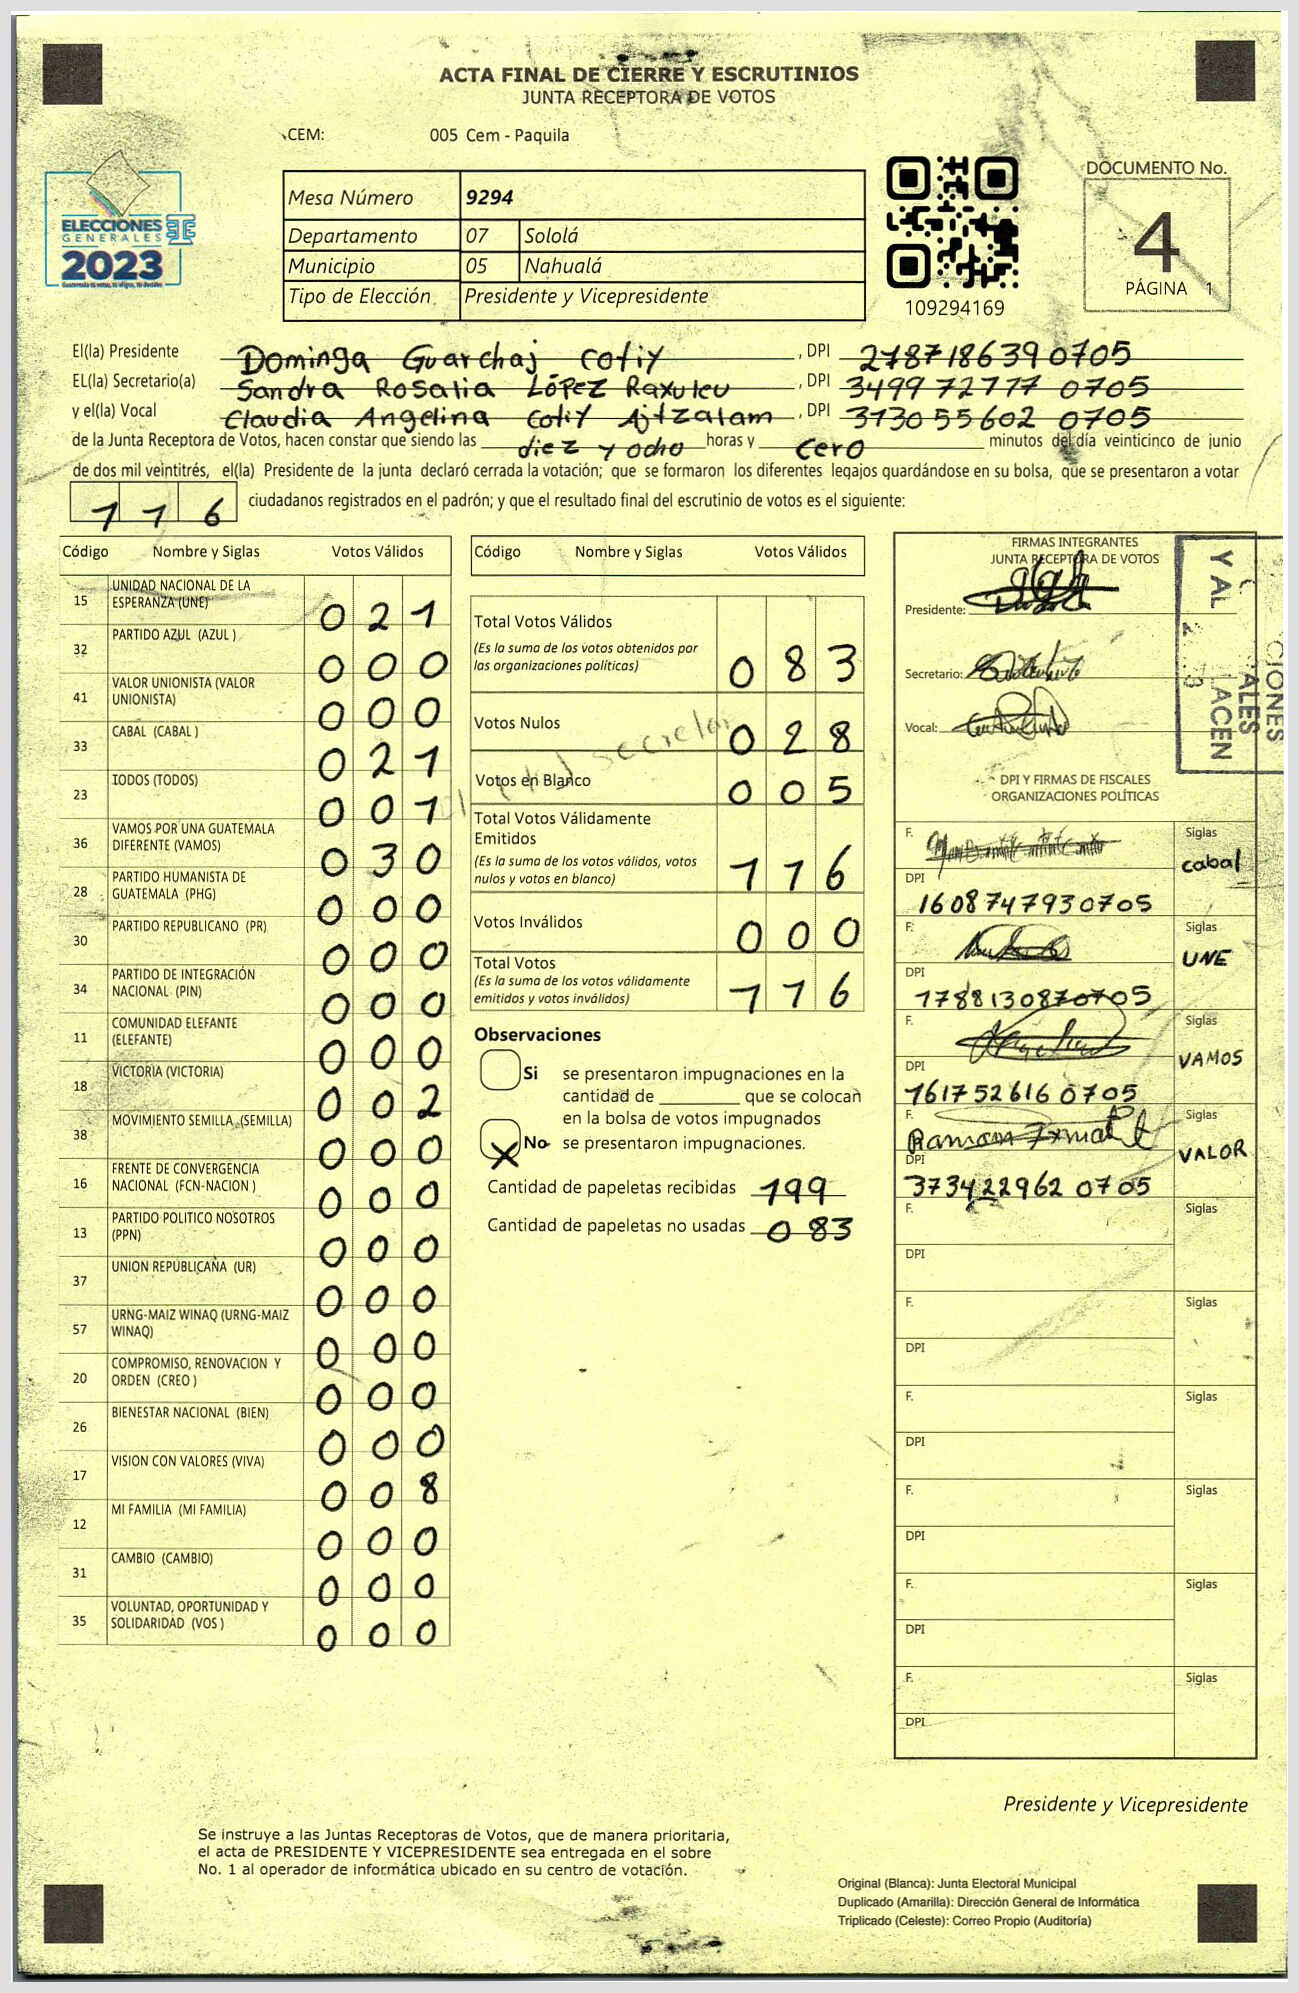 ACTA FINAL DE CIERRE Y ESCRUTINIOS
JUNTA RECEPTORA DE VOTOS
CEM: 005 Cem - Paquila
ELECCIONES
GENERALES
2023
Mesa Número 9294
Departamento 07 Sololá
Municipio 05 Nahualá
Tipo de Elección Presidente y Vicepresidente
109294169
DOCUMENTO No.
4
PÁGINA 1
El(la) Presidente Dominga Guarchaj Cotiy , DPI 2787186390705
EL(la) Secretario(a) Sandra Rosalia LóPEZ Raxuleu , DPI 3499 72777 0705
y el(la) Vocal Claudia Angelina Cotiy Ajtzalam , DPI 3730 55602 0705
de la Junta Receptora de Votos, hacen constar que siendo las diez y ocho horas y cero minutos del día veinticinco de junio
de dos mil veintitrés, el(la) Presidente de la junta declaró cerrada la votación; que se formaron los diferentes legajos guardándose en su bolsa, que se presentaron a votar
116 ciudadanos registrados en el padrón; y que el resultado final del escrutinio de votos es el siguiente:
Código Nombre y Siglas Votos Válidos
15 UNIDAD NACIONAL DE LA ESPERANZA (UNE) 021
32 PARTIDO AZUL (AZUL ) 000
41 VALOR UNIONISTA (VALOR UNIONISTA) 000
33 CABAL (CABAL ) 021
23 TODOS (TODOS) 001
36 VAMOS POR UNA GUATEMALA DIFERENTE (VAMOS) 030
28 PARTIDO HUMANISTA DE GUATEMALA (PHG) 000
30 PARTIDO REPUBLICANO (PR) 000
34 PARTIDO DE INTEGRACIÓN NACIONAL (PIN) 000
11 COMUNIDAD ELEFANTE (ELEFANTE) 000
18 VICTORIA (VICTORIA) 002
38 MOVIMIENTO SEMILLA (SEMILLA) 000
16 FRENTE DE CONVERGENCIA NACIONAL (FCN-NACION ) 000
13 PARTIDO POLITICO NOSOTROS (PPN) 000
37 UNION REPUBLICANA (UR) 000
57 URNG-MAIZ WINAQ (URNG-MAIZ WINAQ) 000
20 COMPROMISO, RENOVACION Y ORDEN (CREO ) 000
26 BIENESTAR NACIONAL (BIEN) 000
17 VISION CON VALORES (VIVA) 008
12 MI FAMILIA (MI FAMILIA) 000
31 CAMBIO (CAMBIO) 000
35 VOLUNTAD, OPORTUNIDAD Y SOLIDARIDAD (VOS ) 000
Código Nombre y Siglas Votos Válidos
Total Votos Válidos
(Es la suma de los votos obtenidos por
las organizaciones políticas) 083
Votos Nulos 028
Votos en Blanco 005
Total Votos Válidamente
Emitidos
(Es la suma de los votos válidos, votos
nulos y votos en blanco) 116
Votos Inválidos 000
Total Votos
(Es la suma de los votos válidamente
emitidos y votos inválidos) 116
Observaciones
Si se presentaron impugnaciones en la
cantidad de ________ que se colocan
en la bolsa de votos impugnados
X No se presentaron impugnaciones.
Cantidad de papeletas recibidas 199
Cantidad de papeletas no usadas 083
FIRMAS INTEGRANTES
JUNTA RECEPTORA DE VOTOS
Presidente:
Secretario:
Vocal:
DPI Y FIRMAS DE FISCALES
ORGANIZACIONES POLÍTICAS
F. Siglas
cabal
DPI
1608747930705
F. Siglas
UNE
DPI
1788130870705
F. Siglas
VAMOS
DPI
1617526160705
F. Siglas
VALOR
DPI
3734229620705
F. Siglas
DPI
F. Siglas
DPI
F. Siglas
DPI
F. Siglas
DPI
F. Siglas
DPI
F. Siglas
DPI
Presidente y Vicepresidente
Se instruye a las Juntas Receptoras de Votos, que de manera prioritaria,
el acta de PRESIDENTE Y VICEPRESIDENTE sea entregada en el sobre
No. 1 al operador de informática ubicado en su centro de votación.
Original (Blanca): Junta Electoral Municipal
Duplicado (Amarilla): Dirección General de Informática
Triplicado (Celeste): Correo Propio (Auditoría)